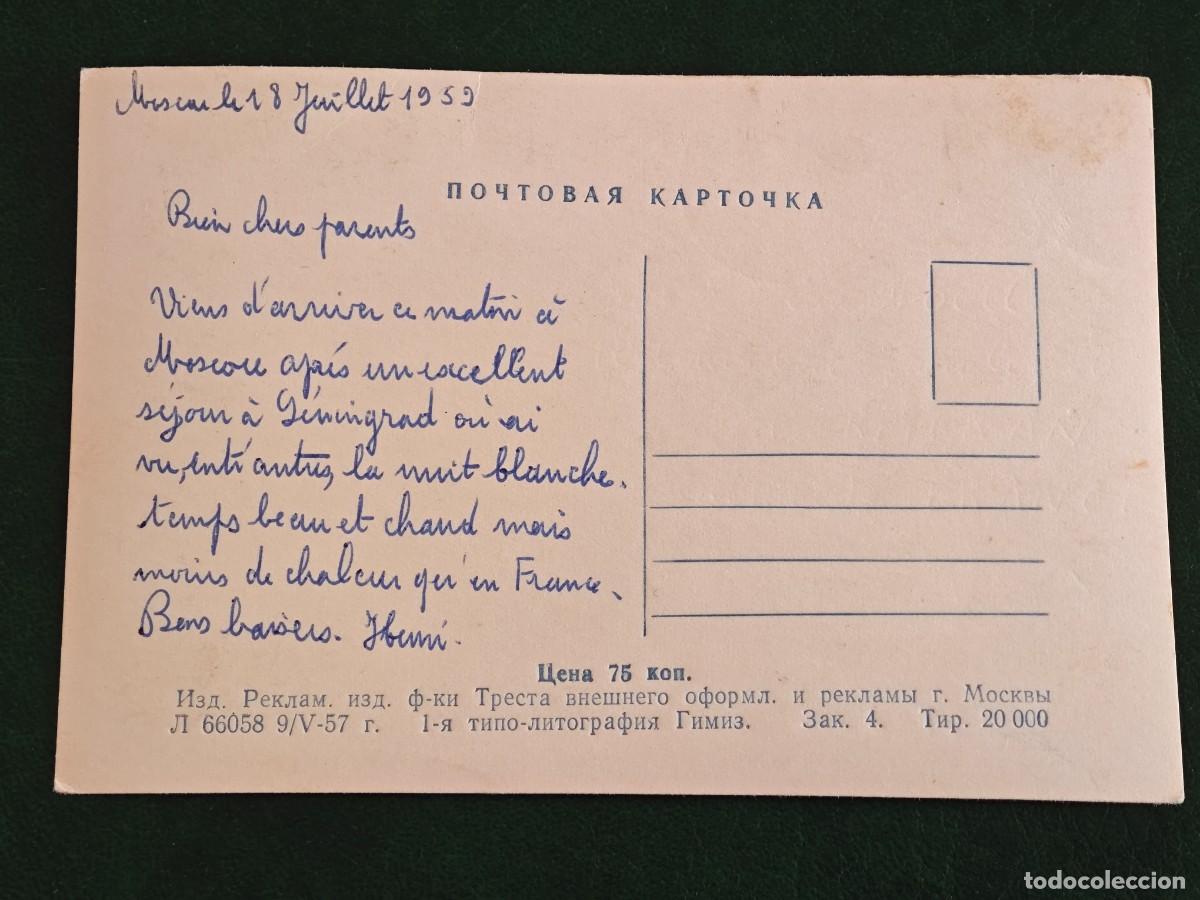 Moscou le 18 Juillet 1959
ПОЧТОВАЯ КАРТОЧКА
Bien chers parents
Viens d'arriver ce matin à
Moscou après un excellent
séjour à Léningrad où ai
vu, entr'autres, la nuit blanche.
temps beau et chaud mais
moins de chaleur qu'en France.
Bons baisers. Henri.
Цена 75 коп.
Изд. Реклам. изд. ф-ки Треста внешнего оформл. и рекламы г. Москвы
Л 66058 9/V-57 г. 1-я типо-литография Гимиз. Зак. 4. Тир. 20 000
todocoleccion